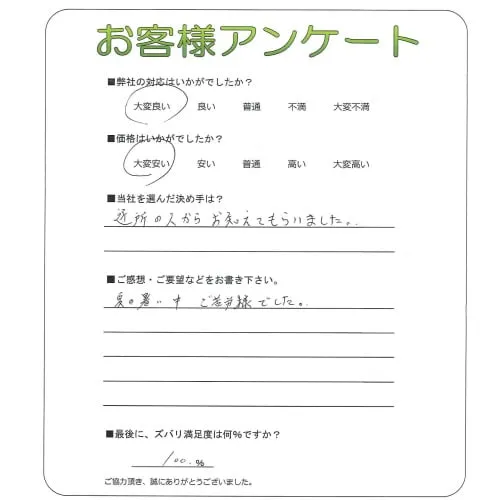 お客様アンケート
■弊社の対応はいかがでしたか?
大変良い 良い 普通 不満 大変不満
■価格はいかがでしたか?
大変安い 安い 普通 高い 大変高い
■当社を選んだ決め手は?
近所の人からお知えてもらいました。
■ご感想・ご要望などをお書き下さい。
夏の暑い中 ご苦労様でした。
■最後に、ズバリ満足度は何%ですか?
100.%
ご協力頂き、誠にありがとうございました。